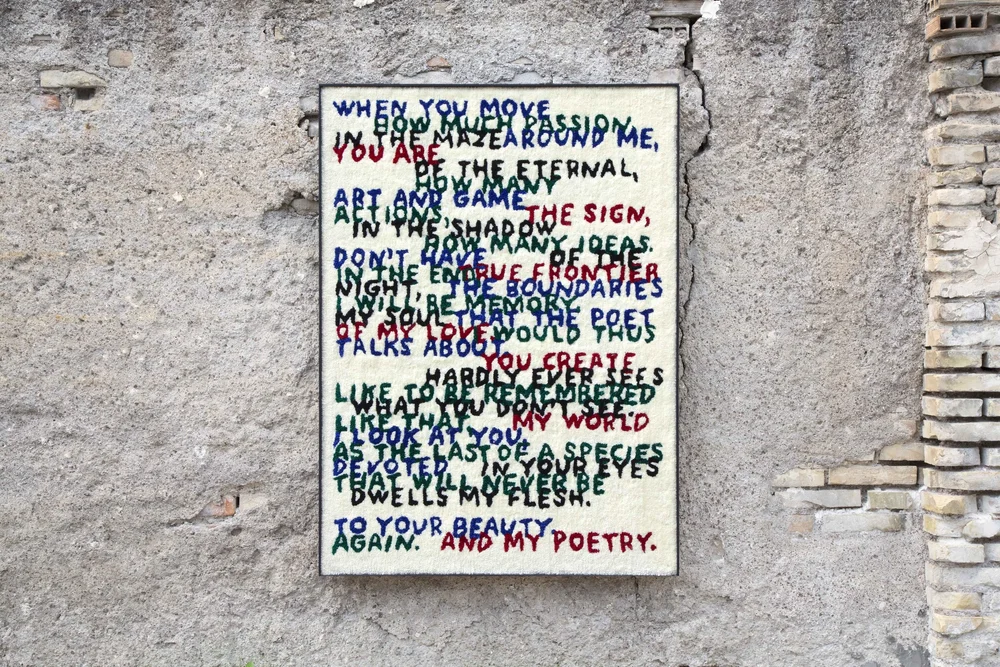 WHEN YOU MOVE
HOW MUCH PASSION
IN THE MAZE AROUND ME,
YOU ARE
OF THE ETERNAL,
HOW MANY
ART AND GAME
ACTIONS, THE SIGN,
IN THE SHADOW
HOW MANY IDEAS.
DON'T HAVE OF THE
IN THE END TRUE FRONTIER
NIGHT, THE BOUNDARIES
I WILL BE MEMORY
MY SOUL THAT THE POET
OF MY LOVE, WOULD THUS
TALKS ABOUT
YOU CREATE
HARDLY EVER SEES
LIKE TO BE REMEMBERED
WHAT YOU DON'T SEE.
LIKE THAT, MY WORLD
I LOOK AT YOU,
AS THE LAST OF A SPECIES
DEVOTED IN YOUR EYES
THAT WILL NEVER BE
DWELLS MY FLESH.
TO YOUR BEAUTY,
AGAIN. AND MY POETRY.